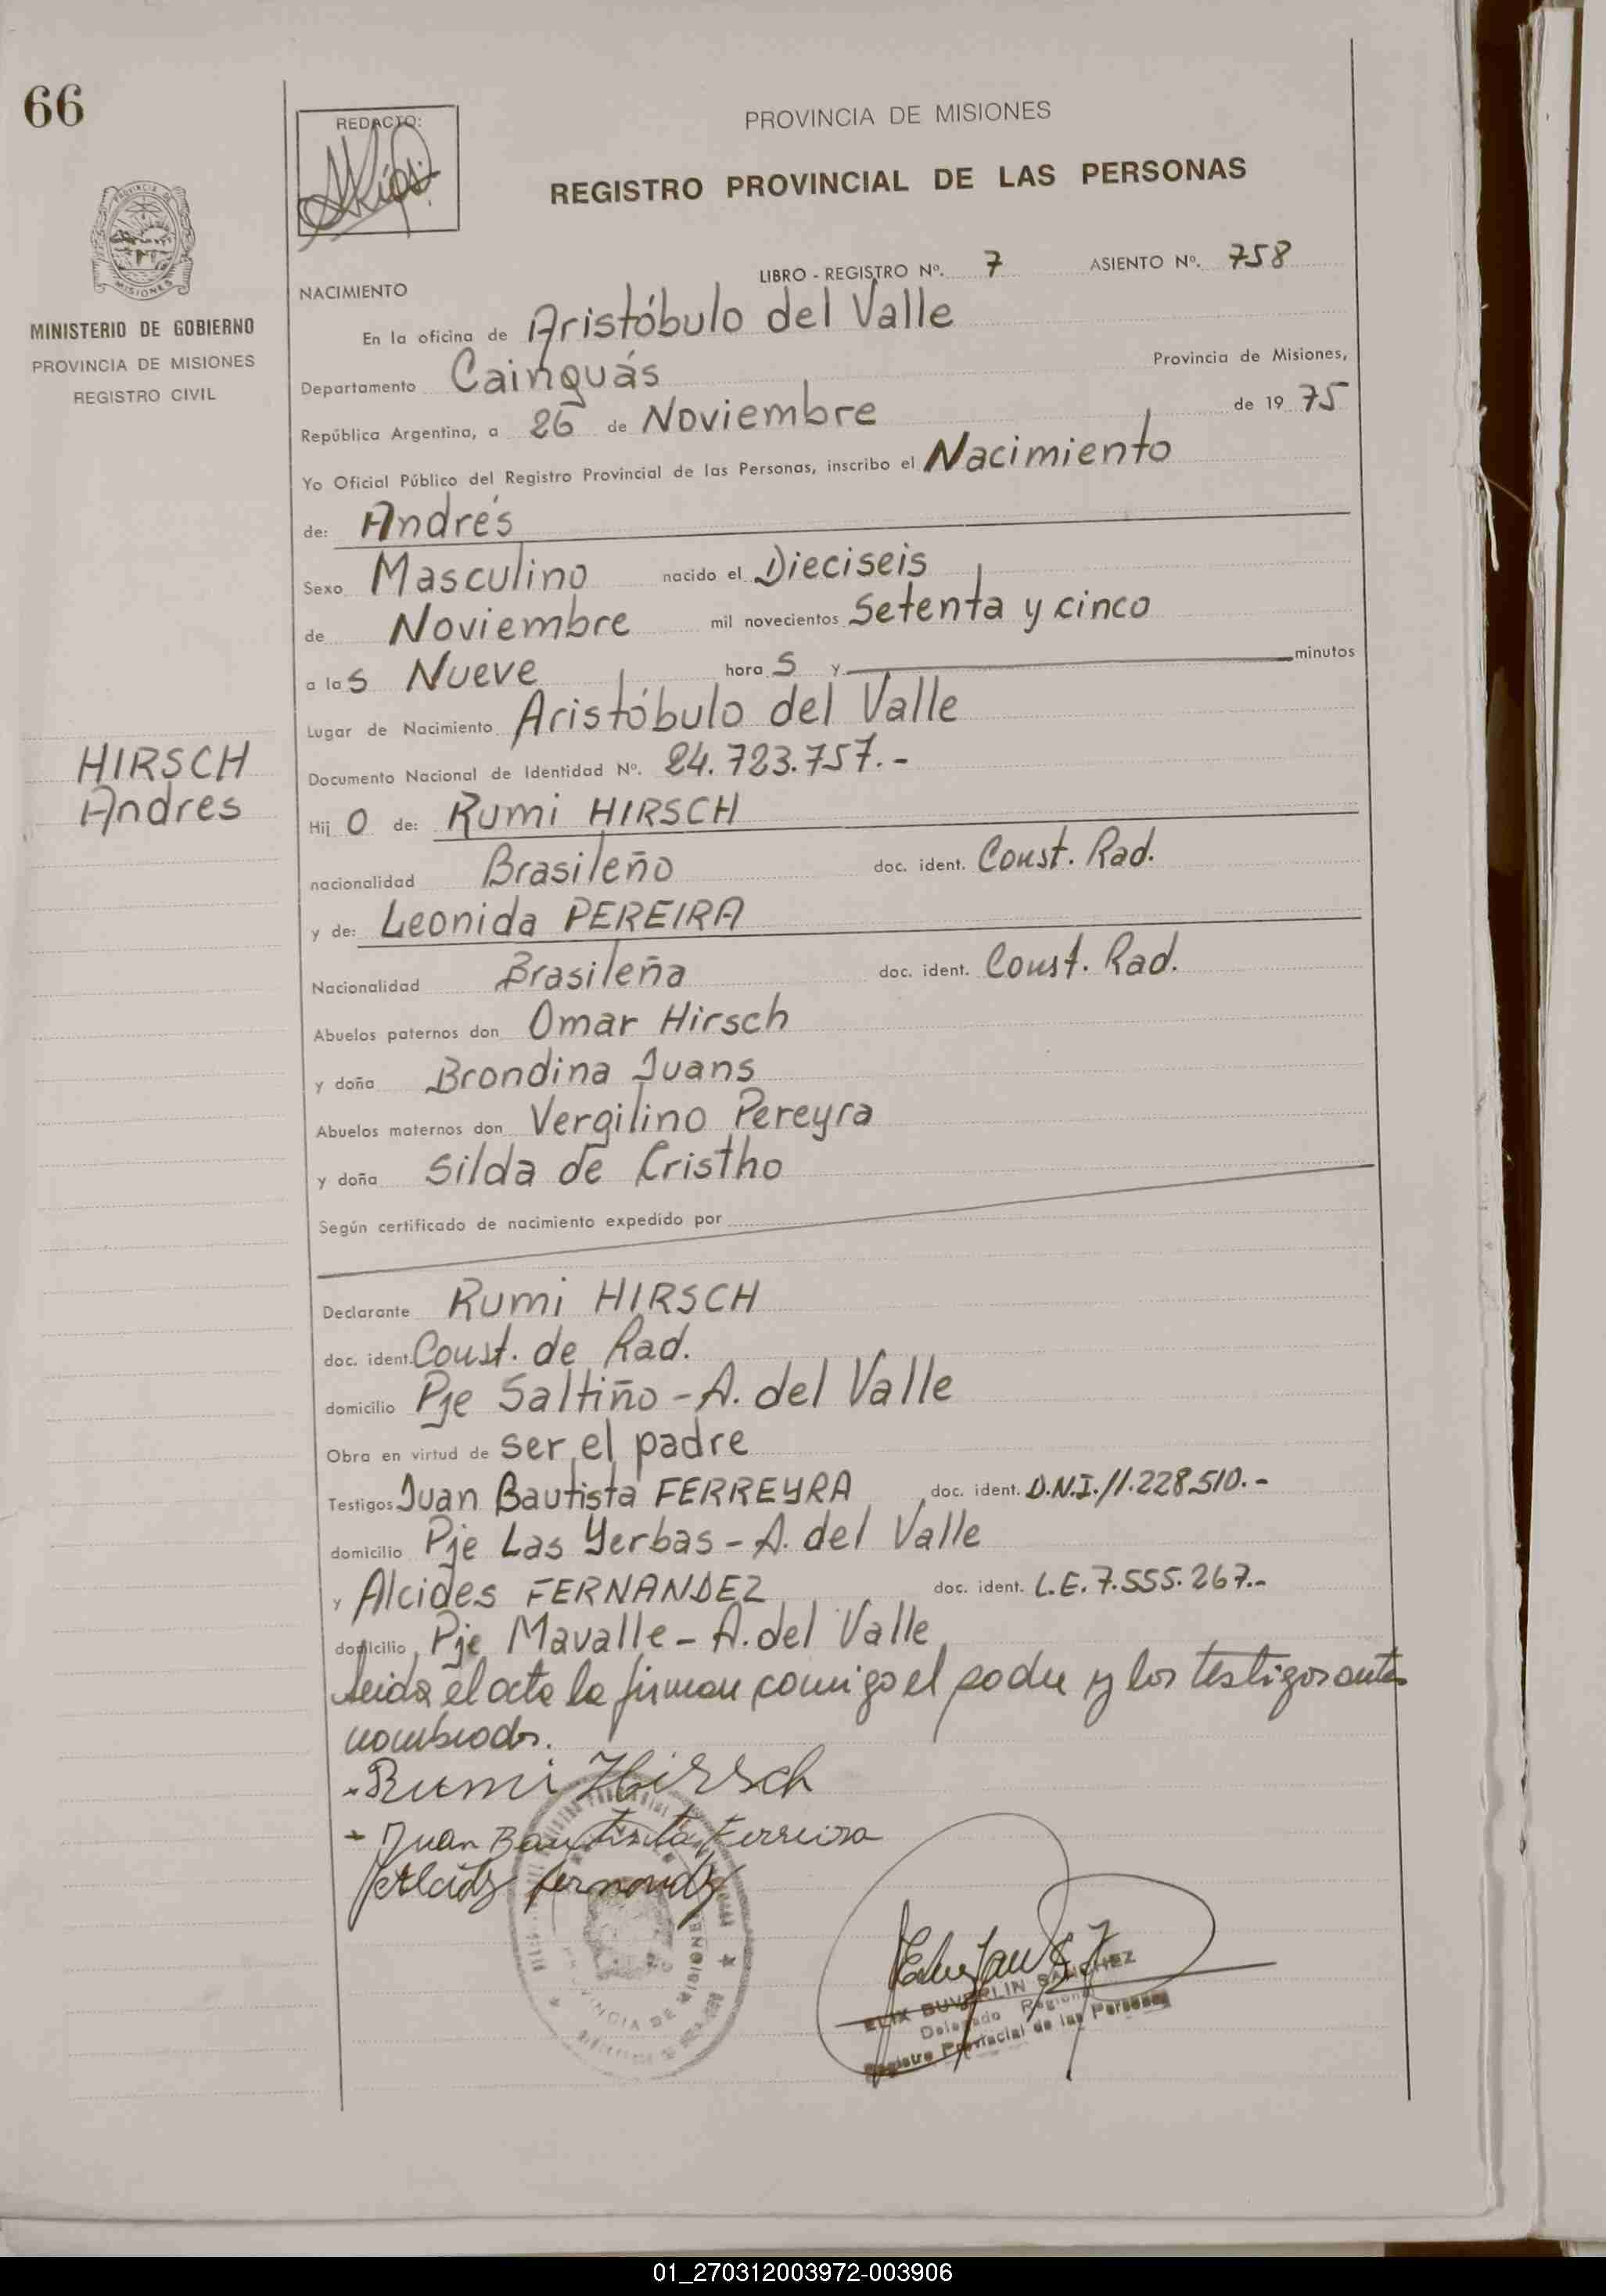 66
REDACTO:
PROVINCIA DE MISIONES
REGISTRO PROVINCIAL DE LAS PERSONAS
PROVINCIA DE
MISIONES
MINISTERIO DE GOBIERNO
PROVINCIA DE MISIONES
REGISTRO CIVIL
LIBRO - REGISTRO Nº. 7 ASIENTO Nº. 758
NACIMIENTO
En la oficina de Aristóbulo del Valle
Departamento Cainguás Provincia de Misiones,
República Argentina, a 26 de Noviembre de 19 75
Yo Oficial Público del Registro Provincial de las Personas, inscribo el Nacimiento
de: Andrés
Sexo Masculino nacido el Dieciseis
de Noviembre mil novecientos Setenta y cinco
a las Nueve horas y minutos
Lugar de Nacimiento Aristóbulo del Valle
HIRSCH
Andres
Documento Nacional de Identidad Nº. 24.723.757.-
Hijo de: Rumi HIRSCH
nacionalidad Brasileño doc. ident. Const. Rad.
y de: Leonida PEREIRA
Nacionalidad Brasileña doc. ident. Const. Rad.
Abuelos paternos don Omar Hirsch
y doña Brondina Juans
Abuelos maternos don Vergilino Pereyra
y doña Silda de Cristho
Según certificado de nacimiento expedido por
Declarante Rumi HIRSCH
doc. ident. Const. de Rad.
domicilio Pje Saltiño - A. del Valle
Obra en virtud de ser el padre
Testigos Juan Bautista FERREYRA doc. ident. D.N.I. 11.228.510.-
domicilio Pje Las Yerbas - A. del Valle
y Alcides FERNANDEZ doc. ident. L.E. 7.555.267.-
domicilio Pje Mavalle - A. del Valle
Leida el acta la firman comigo el padre y los testigos antes
nombrados.
- Rumi Hirsch
- Juan Bautista Ferreira
Alcides Fernandez
PROVINCIA DE MISIONES
ELIX BUVERLIN SANCHEZ
Delegado Regional
Registro Provincial de las Personas
01_270312003972-003906